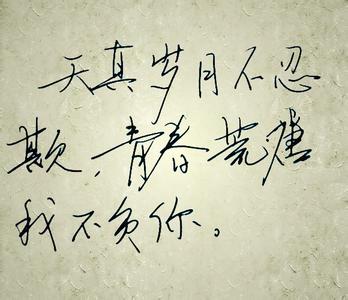 天真岁月不忍
欺,青春荒唐
我不负你。